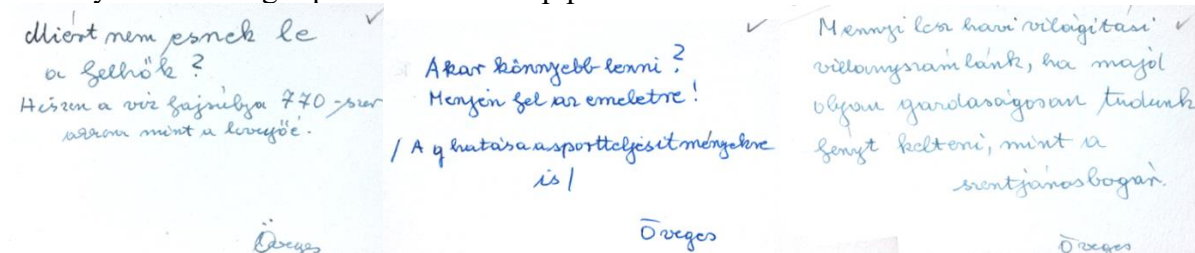 Miért nem esnek le
a felhők ?
Hiszen a víz fajsúlya 770-szer
akkora mint a levegőé.
Öveges
Akar könnyebb lenni ?
Menjen fel az emeletre !
/ A g hatása a sportteljesítményekre
is /
Öveges
Mennyi lesz havi világítási
villanyszámlánk, ha majd
olyan gazdaságosan tudunk
fényt kelteni, mint a
szentjánosbogár.
Öveges